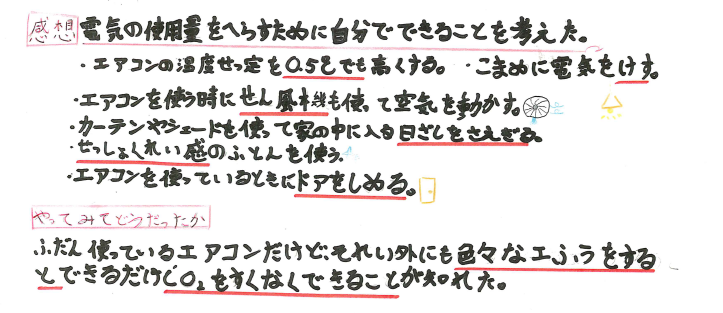 感想 電気の使用量をへらすために自分でできることを考えた。
・エアコンの温度せっ定を0.5℃でも高くする。・こまめに電気をけす。
・エアコンを使う時にせん風本幾も使って空気を動かす。
・カーテンやシェードを使って家の中に入る日ざしをさえぎる。
・せっしょくれい感のふとんを使う。
・エアコンを使っているときにドアをしめる。
やってみてどうだったか
ふだん使っているエアコンだけど、それい外にも色々な工ふうをする
とできるだけCO₂をすくなくできることが知れた。